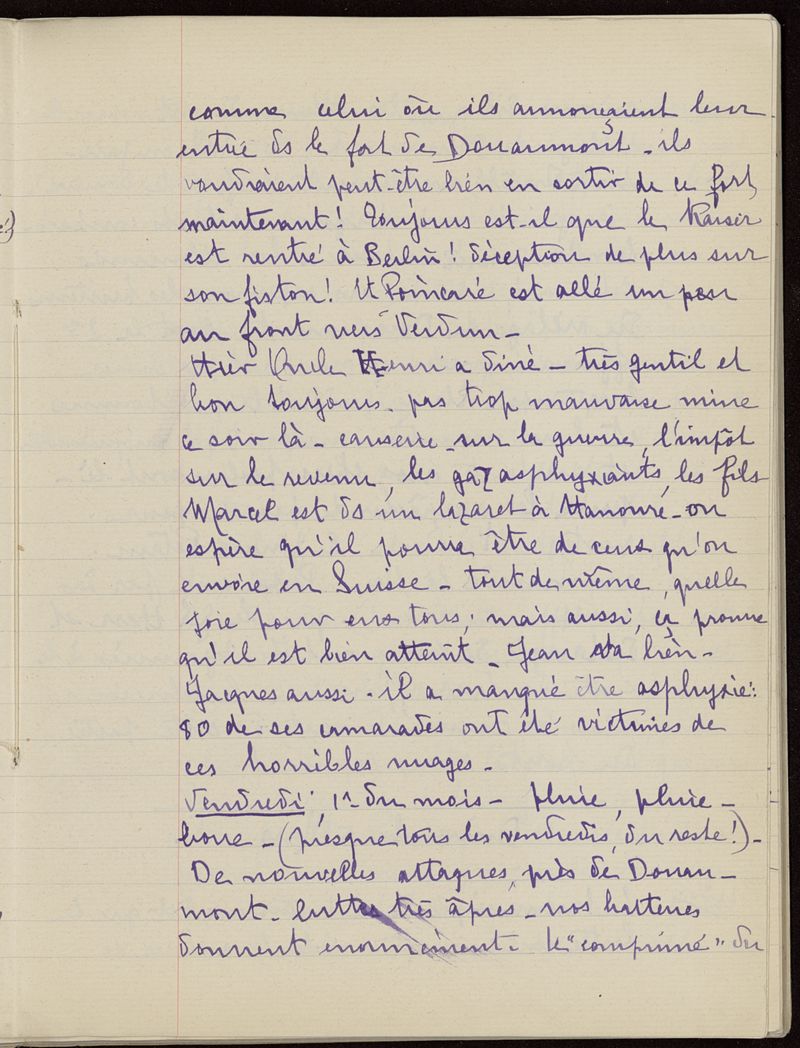 comme celui où ils annonçaient leur
entrée ds le fort de Douaumont - ils
voudraient peut-être bien en sortir de ce fort
maintenant ! Toujours est-il que le Kaiser
est rentré à Berlin ! déception de plus sur
son fiston ! Et Poincaré est allé un peu
au front vers Verdun -
Hier Oncle Henri a diné - très gentil et
bon toujours - pas trop mauvaise mine
ce soir là - causerie sur la guerre, l'impôt
sur le revenu, les gaz asphyxiants, les fils
Marcel est ds un lazaret à Hanovre - on
espère qu'il pourra être de ceux qu'on
envoie en Suisse - tout de même, quelle
joie pour eux tous ; mais aussi, ça prouve
qu'il est bien atteint - Jean va bien -
Jacques aussi - il a manqué être asphyxié :
80 de ses camarades ont été victimes de
ces horribles nuages -
Vendredi, 1er du mois - pluie, pluie -
boue - (presque tous les vendredis, du reste !) -
De nouvelles attaques, près de Douau-
mont - luttes très âpres - nos batteries
donnent enormément - le "comprimé" du